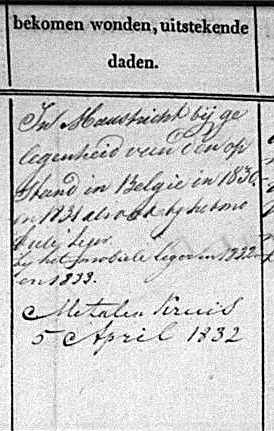 bekomen wonden, uitstekende
daden.
In Maastricht bij ge
legenheid van den op
stand in Belgie in 1830
en 1831 alsook bij het mo
biele leger
bij het mobiele leger in 1832
en 1833.
Metalen Kruis
5 April 1832